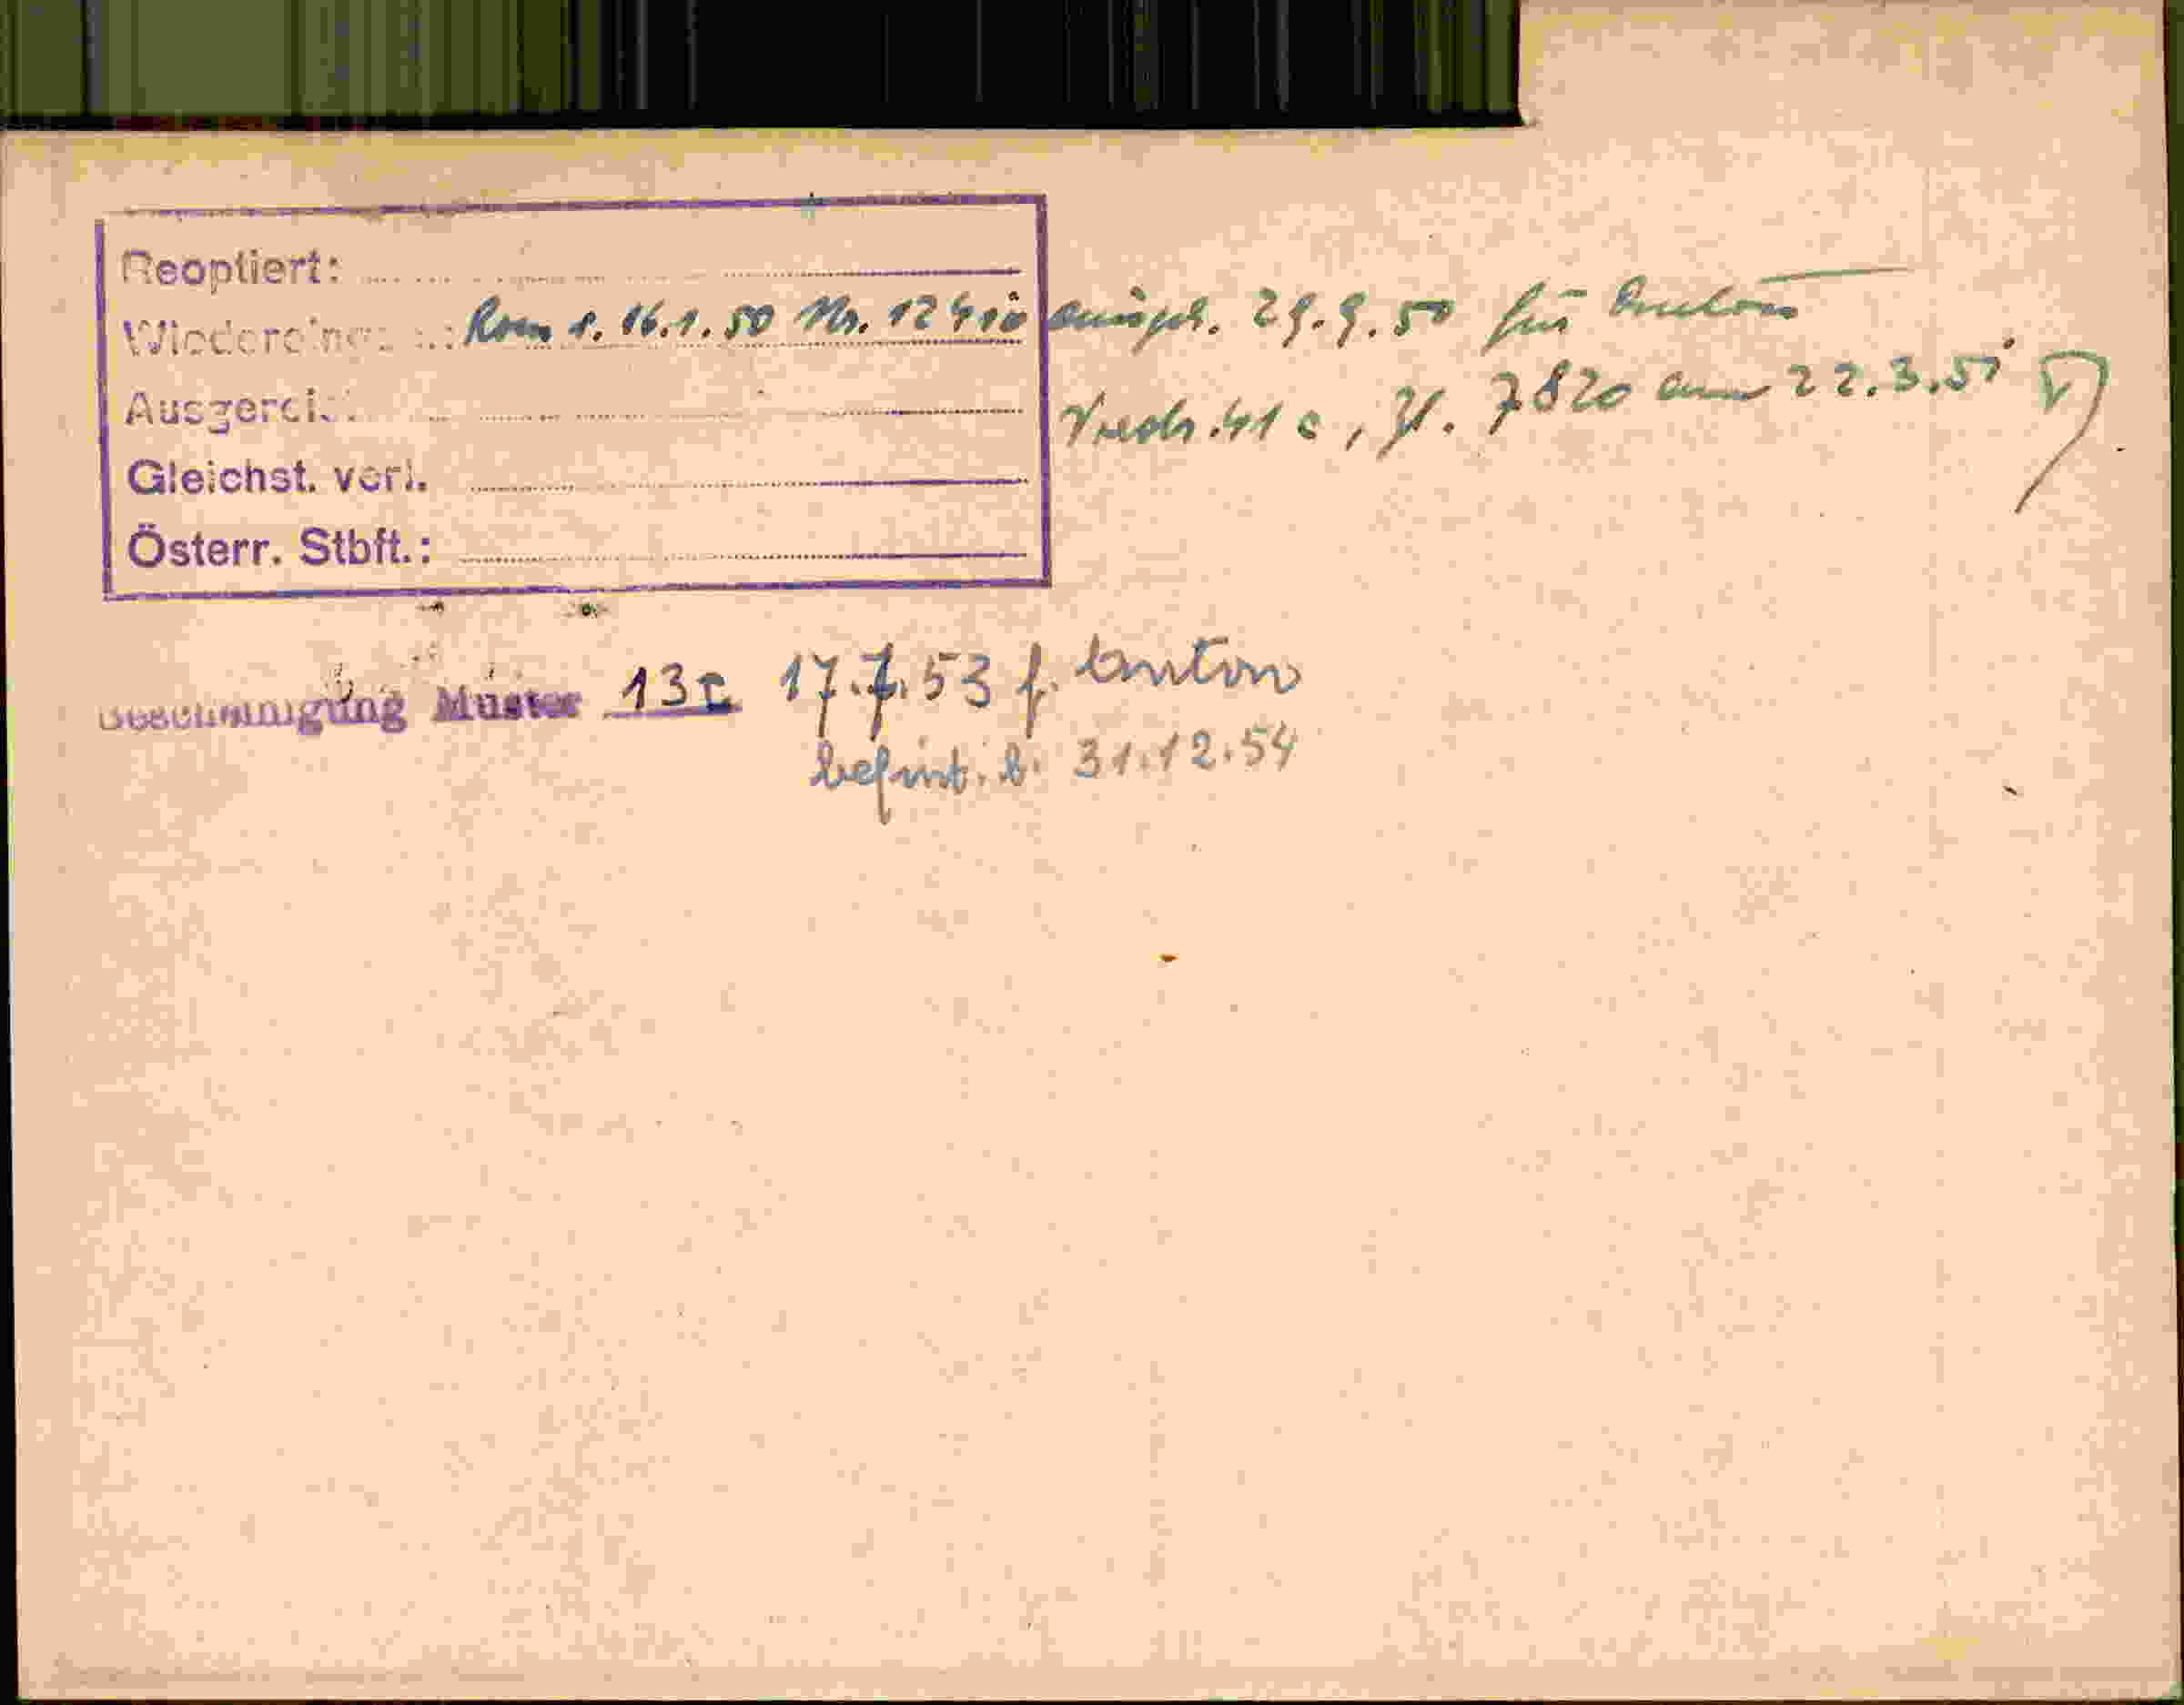 Reoptiert:
Rom v. 16.1.50 Nr. 12410 29.9.50 für Anton
41 c, Zl. 7820 am 22.3.51
Gleichst. verl.
Österr. Stbft.:
Bescheinigung Muster 13c 17.7.53 f. Anton
befrist. b. 31.12.54